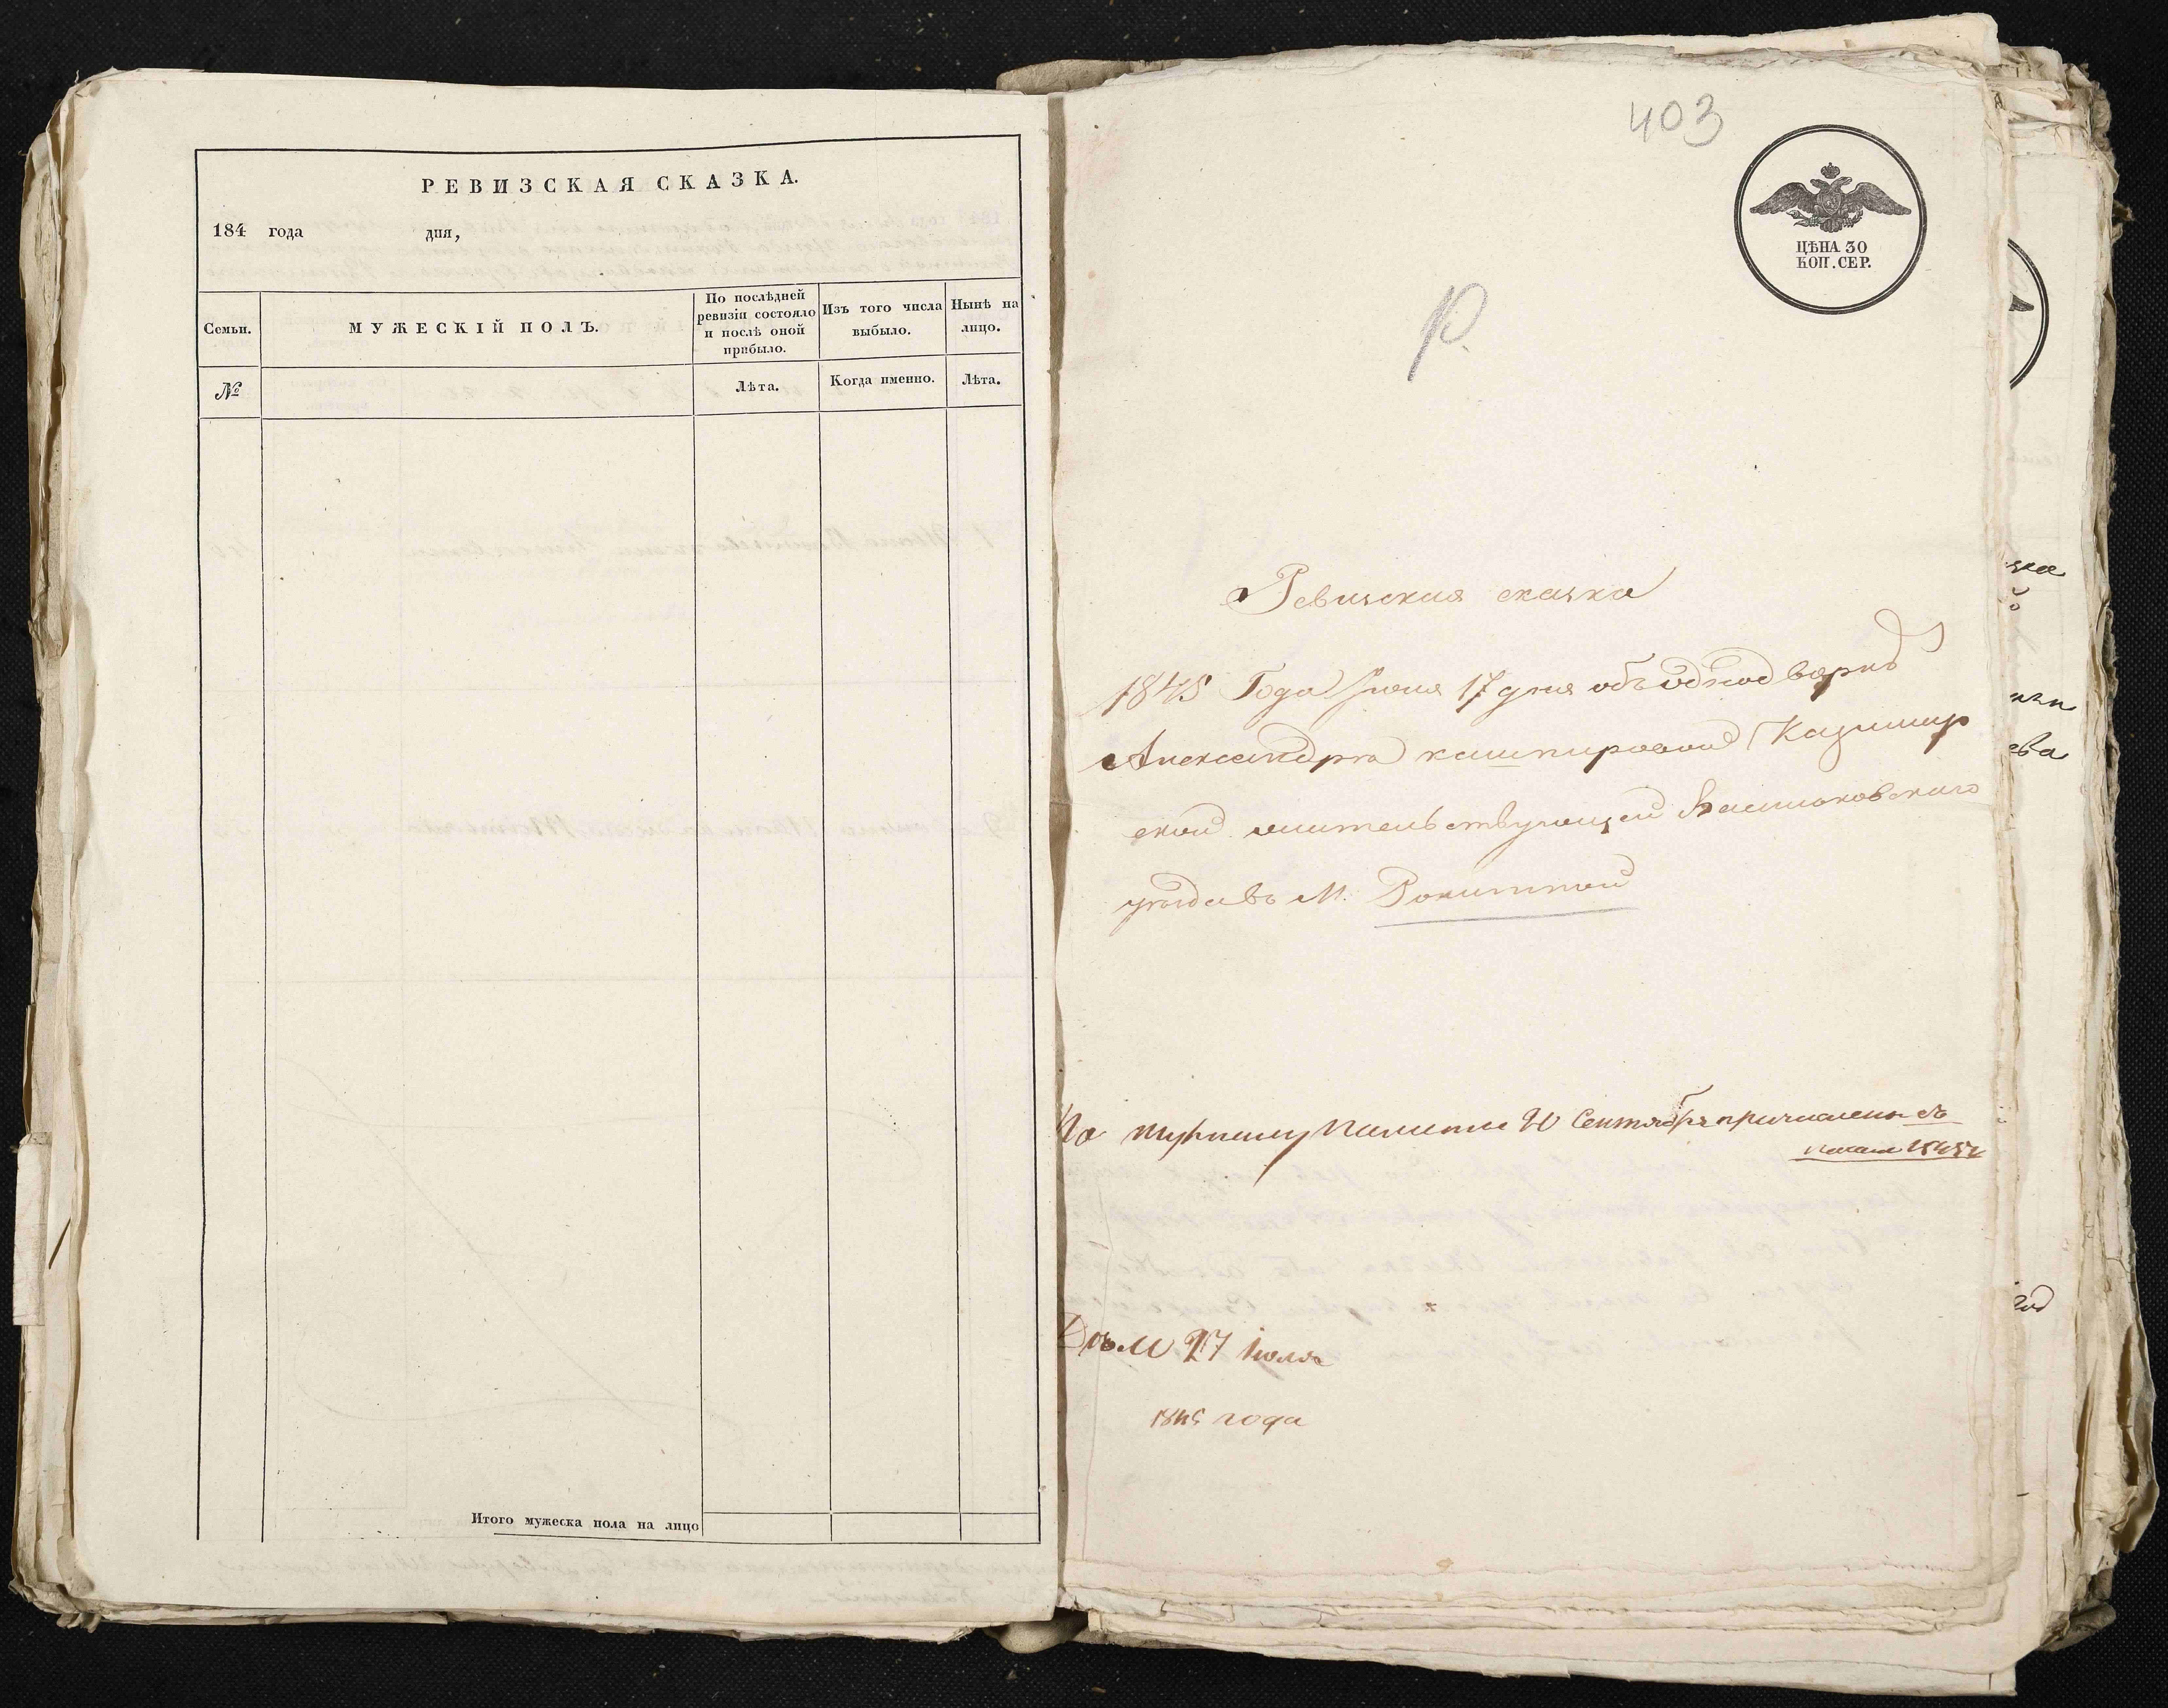 РЕВИЗСКАЯ СКАЗКА.
184 года дня,
Семьи.
МУЖЕСКІЙ ПОЛЪ.
По послѣдней
ревизіи состояло
и послѣ оной
прибыло.
Изъ того числа
выбыло.
Нынѣ на
лицо.
№
Лѣта.
Когда именно.
Лѣта.
Итого мужеска пола на лицо
403
ЦѢНА 30
КОП. СЕР.
Р.
Ревизская сказка
1845 Года Июня 17 дня объ однодворкѣ
Александра Казимир
ской жительствующей Васильковскаго
уѣзда въ М. Рокитной
По журналу Палаты 20 Сентября причислены съ
27 Июля
1845 года